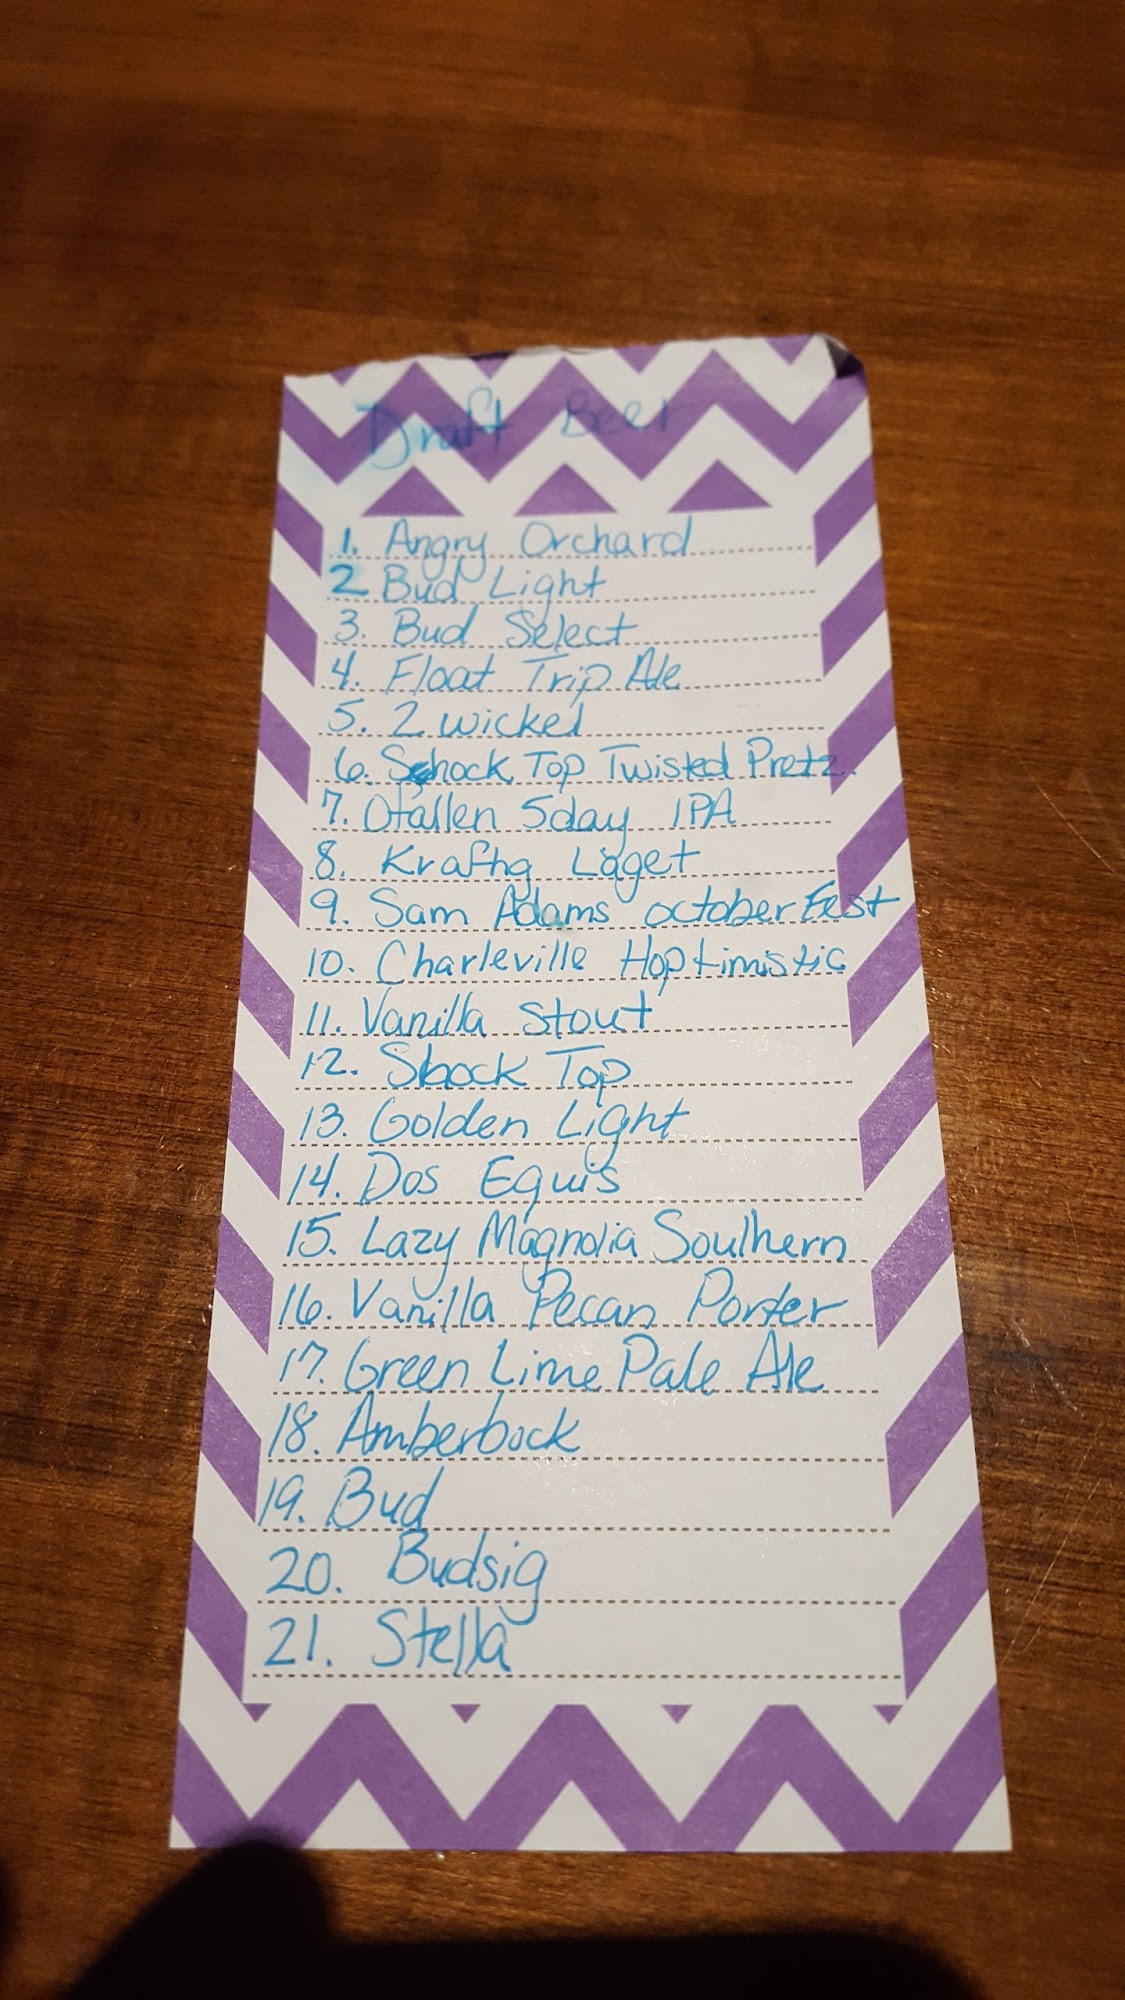 Draft Beer
1. Angry Orchard
2 Bud Light
3. Bud Select
4. Float Trip Ale
5. 2 wicked
6. Schock Top Twisted Pretz.
7. Ofallen 5day IPA
8. Kraftig Laget
9. Sam Adams october Fest
10. Charleville Hoptimistic
11. Vanilla Stout
12. Shock Top
13. Golden Light
14. Dos Equis
15. Lazy Magnolia Southern
16. Vanilla Pecan Porter
17. Green Lime Pale Ale
18. Amberbock
19. Bud
20. Budsig
21. Stella